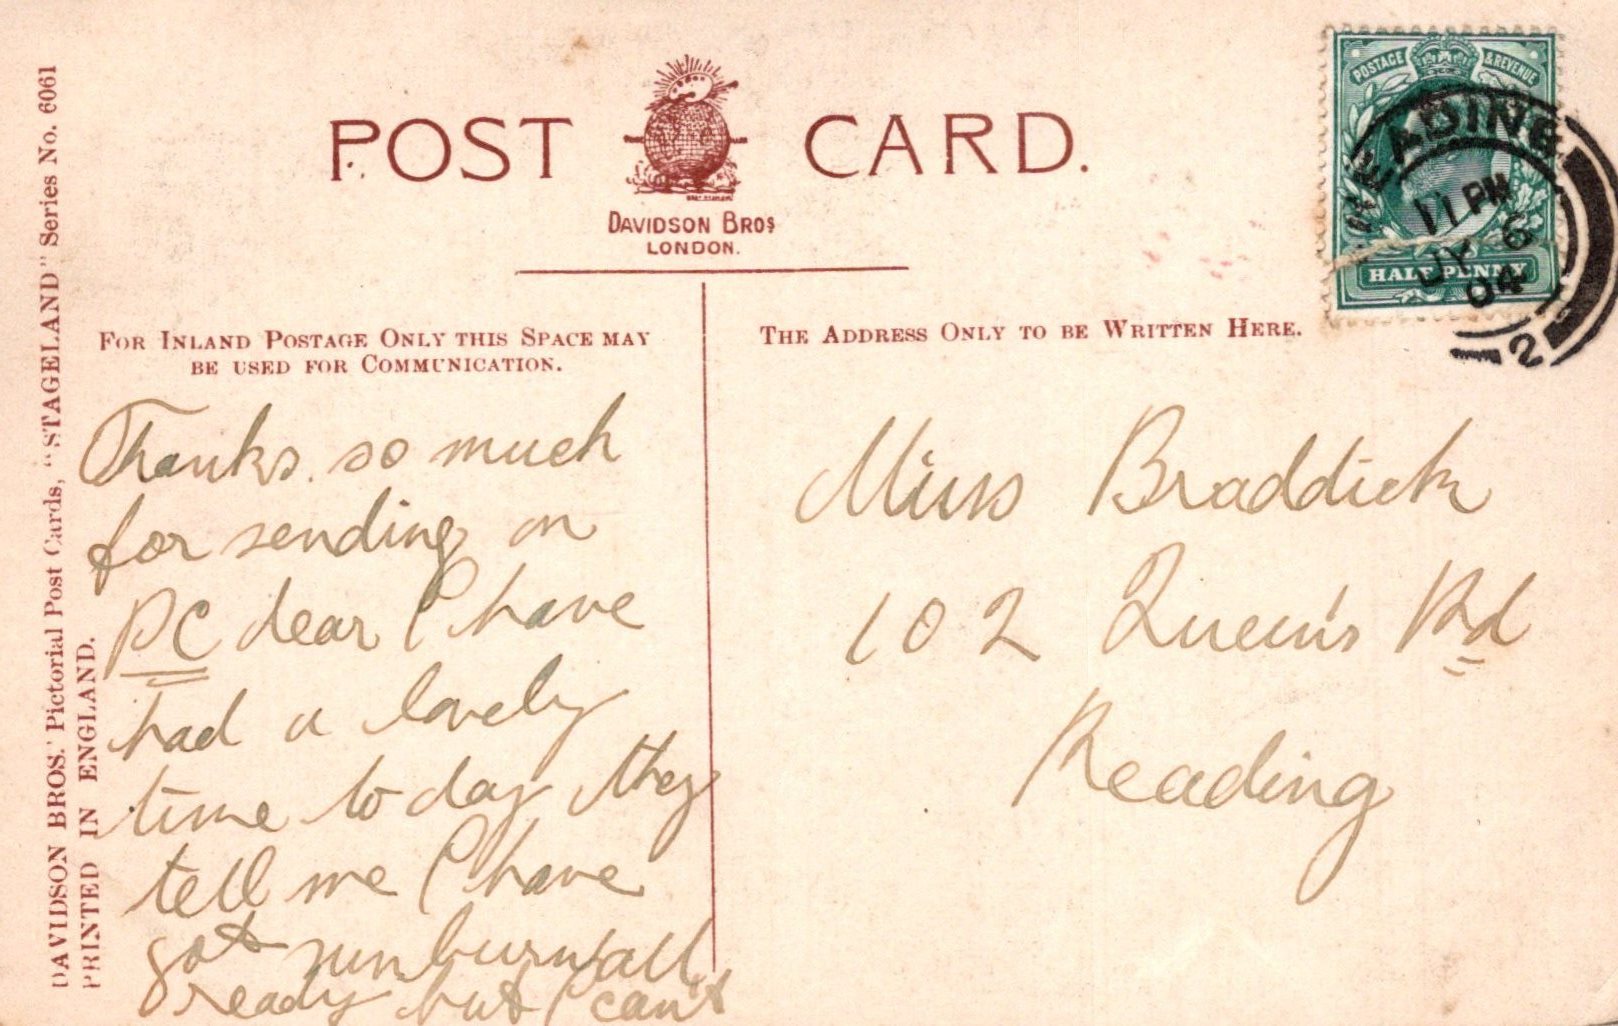 POST CARD.
DAVIDSON BROS
LONDON.
DAVIDSON BROS.' Pictorial Post Cards, "STAGELAND" Series No. 6061
PRINTED IN ENGLAND.
FOR INLAND POSTAGE ONLY THIS SPACE MAY
BE USED FOR COMMUNICATION.
THE ADDRESS ONLY TO BE WRITTEN HERE.
POSTAGE & REVENUE
HALF PENNY
READING
11 PM
JY 6
04
2
Thanks so much
for sending on
PC dear I have
had a lovely
time to day they
tell me I have
got sunburnt all
ready but I can't
Miss Braddick
102 Queen's Rd
Reading